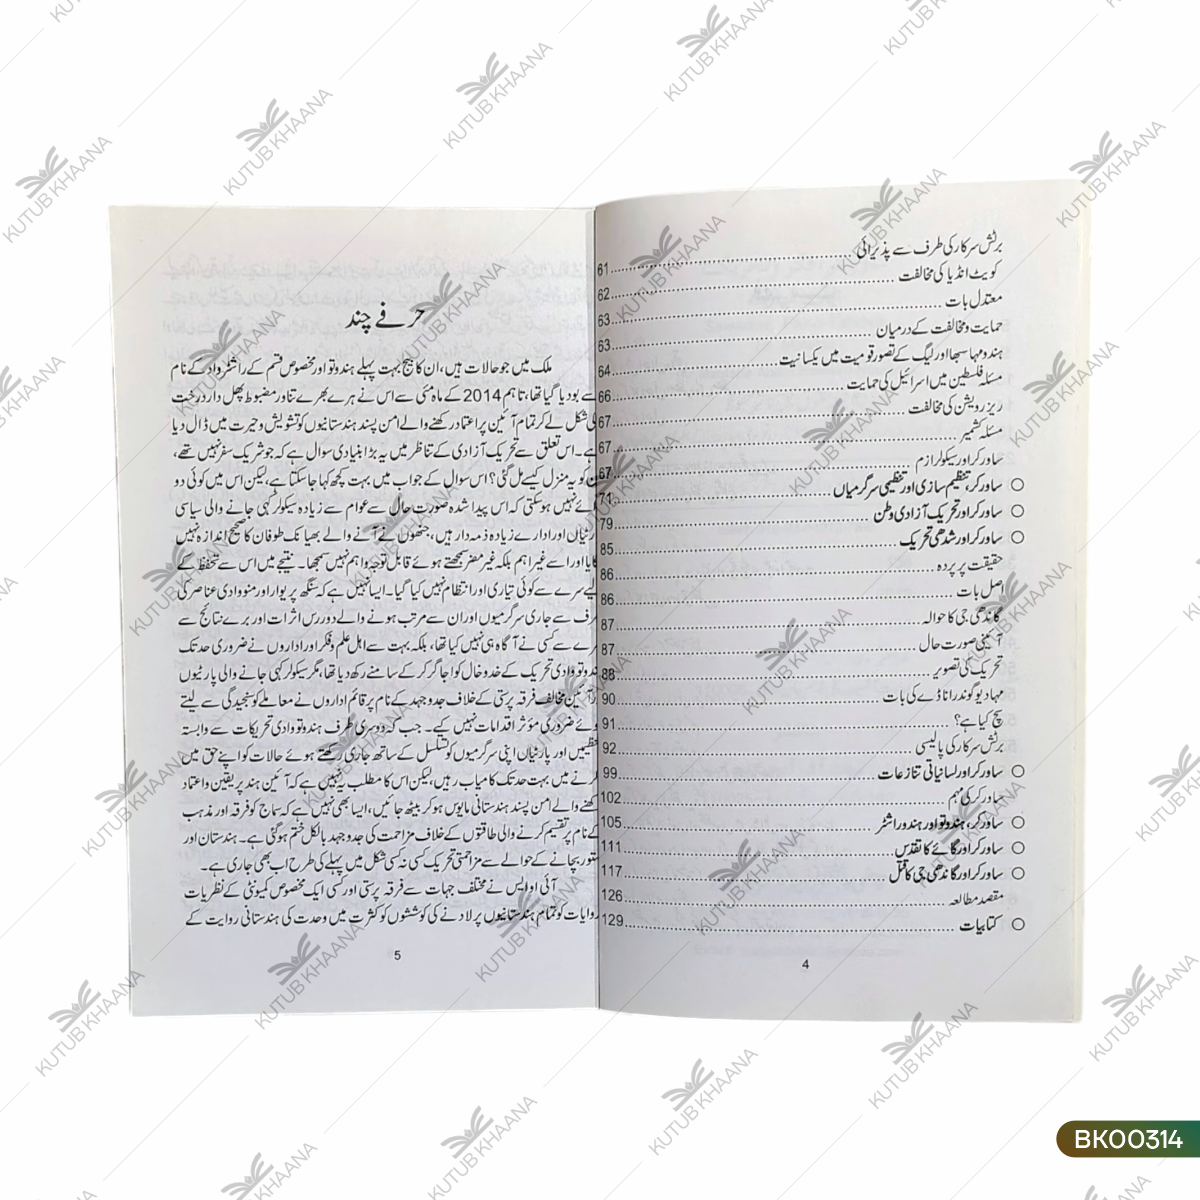 برٹش سرکار کی طرف سے پذیرائی 61
کویٹ انڈیا کی مخالفت 62
معتدل بات 63
حمایت و مخالفت کے درمیان 63
ہندو مہا سبھا اور لیگ کے تصور قومیت میں یکسانیت 64
مسئلہ فلسطین میں اسرائیل کی حمایت 66
ریزرویشن کی مخالفت 67
مسئلہ کشمیر 67
ساورکر اور سیکولرازم 67
ساورکر، تنظیم سازی اور تنظیمی سرگرمیاں 71
ساورکر اور تحریک آزادی وطن 79
ساورکر اور شدھی تحریک 85
حقیقت پر پردہ 86
اصل بات 86
گاندھی جی کا حوالہ 87
آئینی صورت حال 87
تحریک کی تصویر 88
مہادیو گوندراناڈے کی بات 90
سچ کیا ہے؟ 91
برٹش سرکار کی پالیسی 92
ساورکر اور لسانیاتی تنازعات 99
ساورکر کی مہم 102
ساورکر، ہندوتو اور ہندو راشٹر 105
ساورکر اور گائے کا تقدس 111
ساورکر اور گاندھی جی کا قتل 117
مقصد مطالعہ 126
کتابیات 129
4
حرفے چند
ملک میں جو حالات ہیں، ان کا بیج بہت پہلے ہندوتو اور مخصوص قسم کے راشٹرواد کے نام
سے بو دیا گیا تھا، تاہم 2014 کے ماہ مئی سے اس نے ہرے بھرے تناور مضبوط پھل دار درخت
کی شکل لے کر تمام آئین پر اعتماد رکھنے والے امن پسند ہندستانیوں کو تشویش و حیرت میں ڈال دیا
ہے۔ اس تعلق سے تحریک آزادی کے تناظر میں یہ بڑا بنیادی سوال ہے کہ جو شریک سفر نہیں تھے،
ان کو یہ منزل کیسے مل گئی؟ اس سوال کے جواب میں بہت کچھ کہا جا سکتا ہے، لیکن اس میں کوئی دو
رائے نہیں ہو سکتی کہ اس پیدا شدہ صورت حال سے عوام سے زیادہ سیکولر کہی جانے والی سیاسی
پارٹیاں اور ادارے زیادہ ذمہ دار ہیں، جنھوں نے آنے والے بھیانک طوفان کا صحیح اندازہ نہیں
لگایا اور اسے غیر اہم بلکہ غیر مضر سمجھتے ہوئے قابل توجہ و اہم نہیں سمجھا۔ نتیجے میں اس سے تحفظ کے
لیے سرے سے کوئی تیاری اور انتظام نہیں کیا گیا۔ ایسا نہیں ہے کہ سنگھ پریوار اور منووادی عناصر کی
طرف سے جاری سرگرمیوں اور ان سے مرتب ہونے والے دور رس اثرات اور برے نتائج سے
سرے سے کسی نے آگاہ ہی نہیں کیا تھا، بلکہ بہت سے اہل علم و فکر اور اداروں نے ضروری حد تک
ہندوتووادی تحریک کے خدوخال کو اجاگر کر کے سامنے رکھ دیا تھا، مگر سیکولر کہی جانے والی پارٹیوں
اور آئین مخالف فرقہ پرستی کے خلاف جدوجہد کے نام پر قائم اداروں نے معاملے کو سنجیدگی سے لیتے
ہوئے ضروری مؤثر اقدامات نہیں کیے۔ جب کہ دوسری طرف ہندوتووادی تحریکات سے وابستہ
تنظیمیں اور پارٹیاں اپنی سرگرمیوں کو تسلسل کے ساتھ جاری رکھتے ہوئے حالات کو اپنے حق میں
کرنے میں بہت حد تک کامیاب رہیں، لیکن اس کا مطلب یہ نہیں ہے کہ آئین ہند پر یقین و اعتماد
رکھنے والے امن پسند ہندستانی مایوس ہو کر بیٹھ جائیں، ایسا بھی نہیں ہے کہ سماج کو فرقہ اور مذہب
کے نام پر تقسیم کرنے والی طاقتوں کے خلاف مزاحمت کی جدوجہد بالکل ختم ہو گئی ہے۔ ہندستان اور
دستور بچانے کے حوالے سے مزاحمتی تحریک کسی نہ کسی شکل میں پہلے کی طرح اب بھی جاری ہے۔
آئی او ایس نے مختلف جہات سے فرقہ پرستی اور کسی ایک مخصوص کمیونٹی کے نظریات
و روایات کو تمام ہندستانیوں پر لادنے کی کوششوں کو کثرت میں وحدت کی ہندستانی روایت کے
5
BK00314
KUTUB KHAANA